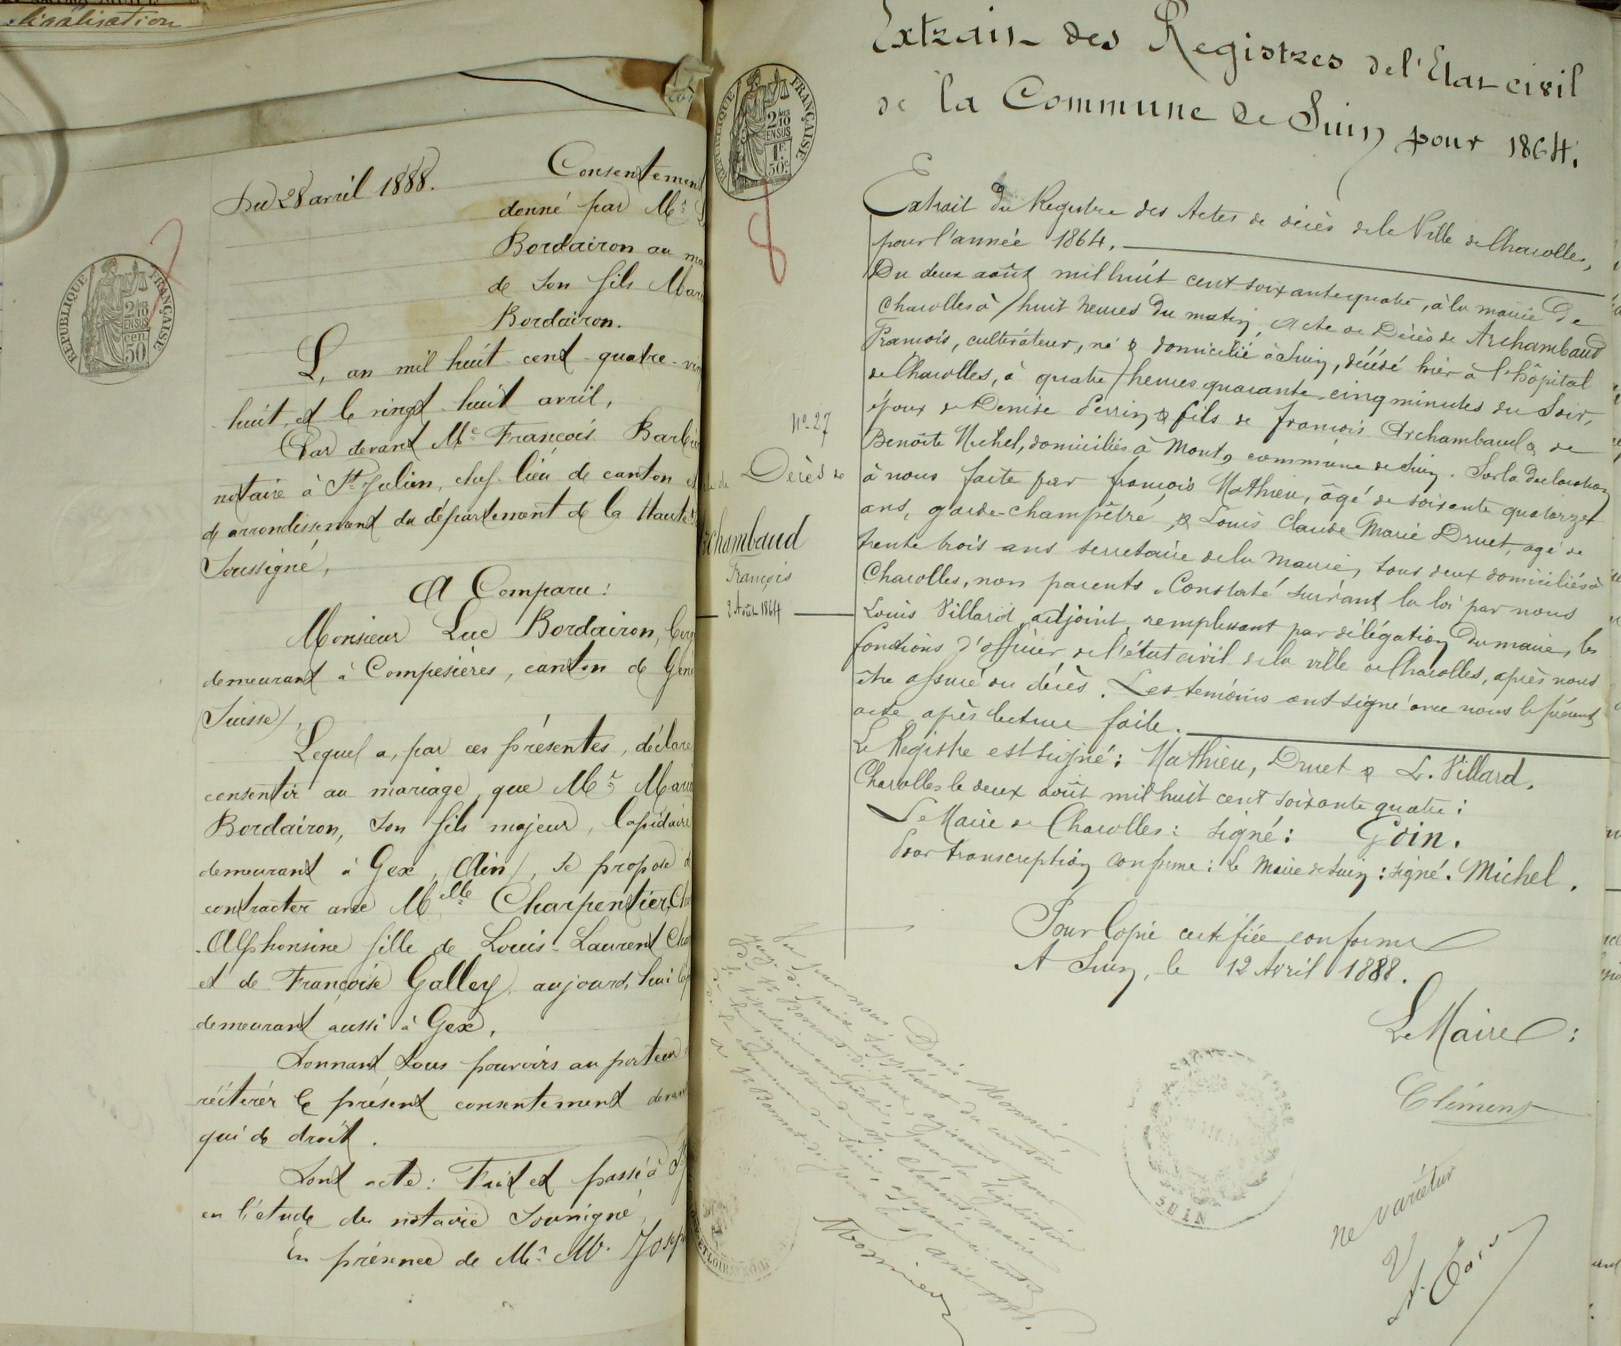 légalisation
Du 28 avril 1888.
Consentement
donné par Mr
Bordairon au
de son fils
Bordairon.
L'an mil huit cent quatre-
huit, et le vingt-huit avril,
Par devant Me François
notaire à St Julien, chef-lieu de canton
d'arrondissement du département de la Haute
Soussigné,
A Comparu:
Monsieur Luc Bordairon,
demeurant à Compesières, canton de
Suisse),
Lequel a, par ces présentes, déclaré
consentir au mariage que Mr
Bordairon, son fils majeur, lapidaire
demeurant à Gex, (Ain), se propose
contracter avec Mlle Charpentier
Alphonsine fille de Louis-Laurent
et de Françoise Galley, aujourd'hui
demeurant aussi à Gex.
Donnant tous pouvoirs au porteur
réitérer le présent consentement devant
qui de droit.
Dont acte: Fait et passé à
en l'étude du notaire soussigné,
En présence de Mr
REPUBLIQUE FRANÇAISE
2/10 EN SUS
50
REPUBLIQUE FRANÇAISE
2/10 EN SUS
1F 50c
8
Extrait des Registres de l'Etat-civil
de la Commune de Suin pour 1864.
No 27
Décès de
Archambaud
François
2 Août 1864
Extrait du Registre des Actes de décès de la Ville de Charolles,
pour l'année 1864.
Du deux août mil huit cent soixante quatre, à la mairie de
Charolles à huit heures du matin, Acte de Décès de Archambaud
François, cultivateur, né & domicilié à Suin, décédé hier à l'hôpital
de Charolles, à quatre heures quarante-cinq minutes du Soir,
époux de Denise Perrin & fils de François Archambaud & de
Benoîte Michel, domiciliés à Mont, commune de Suin. Sur la déclaration
à nous faite par François Mathieu, âgé de soixante quatorze
ans, garde-champêtre, & Louis Claude Marie Druet, agé de
trente trois ans secretaire de la Mairie, tous deux domiciliés à
Charolles, non parents. Constaté suivant la loi par nous
Louis Villard, adjoint, remplissant par délégation du maire, les
fonctions d'officier de l'état civil de la ville de Charolles, après nous
être assuré du décès. Les témoins ont signé avec nous le présent
acte après lecture faite.
Le Registre est signé: Mathieu, Druet & L. Villard.
Charolles le deux août mil huit cent soixante quatre:
Le Maire de Charolles: signé: Goin.
Pour transcription conforme: le Maire de Suin: signé. Michel.
Pour Copie certifiée conforme
A Suin, le 12 Avril 1888.
Le Maire:
Clément
SUIN
Vu par nous,
ne varietur